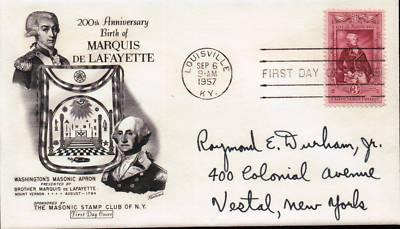 200th Anniversary
Birth of
MARQUIS
DE LAFAYETTE
WASHINGTON'S MASONIC APRON
PRESENTED BY
BROTHER MARQUIS de LAFAYETTE
MOUNT VERNON AUGUST - 1784
SPONSORED BY
THE MASONIC STAMP CLUB OF N.Y.
First Day Cover
LOUISVILLE
SEP 6
9-AM
1957
KY.
FIRST DAY O
3¢
Raymond E. Durham, Jr.
400 Colonial Avenue
Vestal, New York